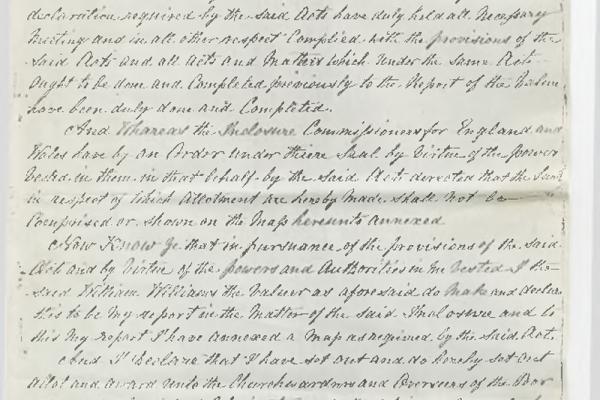 declaration required by the said Acts have duly held all Necessary
Meeting and in all other respect Complied with the provisions of the
said Acts and all Acts and Matters which under the same Acts
ought to be done and Completed previously to the Report of the Valuer
have been duly done and Completed.
And Whereas the Inclosure Commissioners for England and
Wales have by an Order under their Seal by Virtue of the power
Vested in them in that behalf by the said Acts directed that the
in respect of which Allotment are hereby Made shall not be
Comprised or shown on the Map hereunto annexed
Now Know Ye that in pursuance of the provisions of the said
Act and by Virtue of the powers and Authorities in Me Vested I the
said William Williams the Valuer as aforesaid do Make and declare
this to be My report in the Matter of the said Inclosure and to
this My report I have annexed a Map as required by the said Act.
And I Declare that I have set out and do hereby set out
Allot and award unto the Churchwardens and Overseers of the Poor